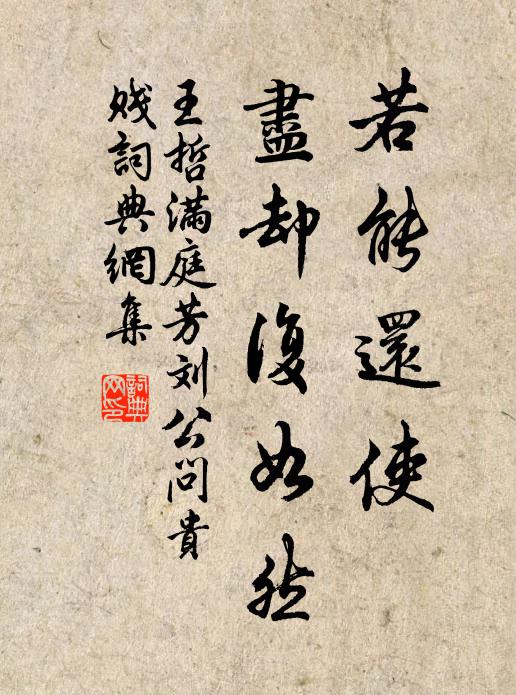 若能還使
盡却復如然
王哲满庭芳刘公问貴
贱詞典網集
詞典
网印